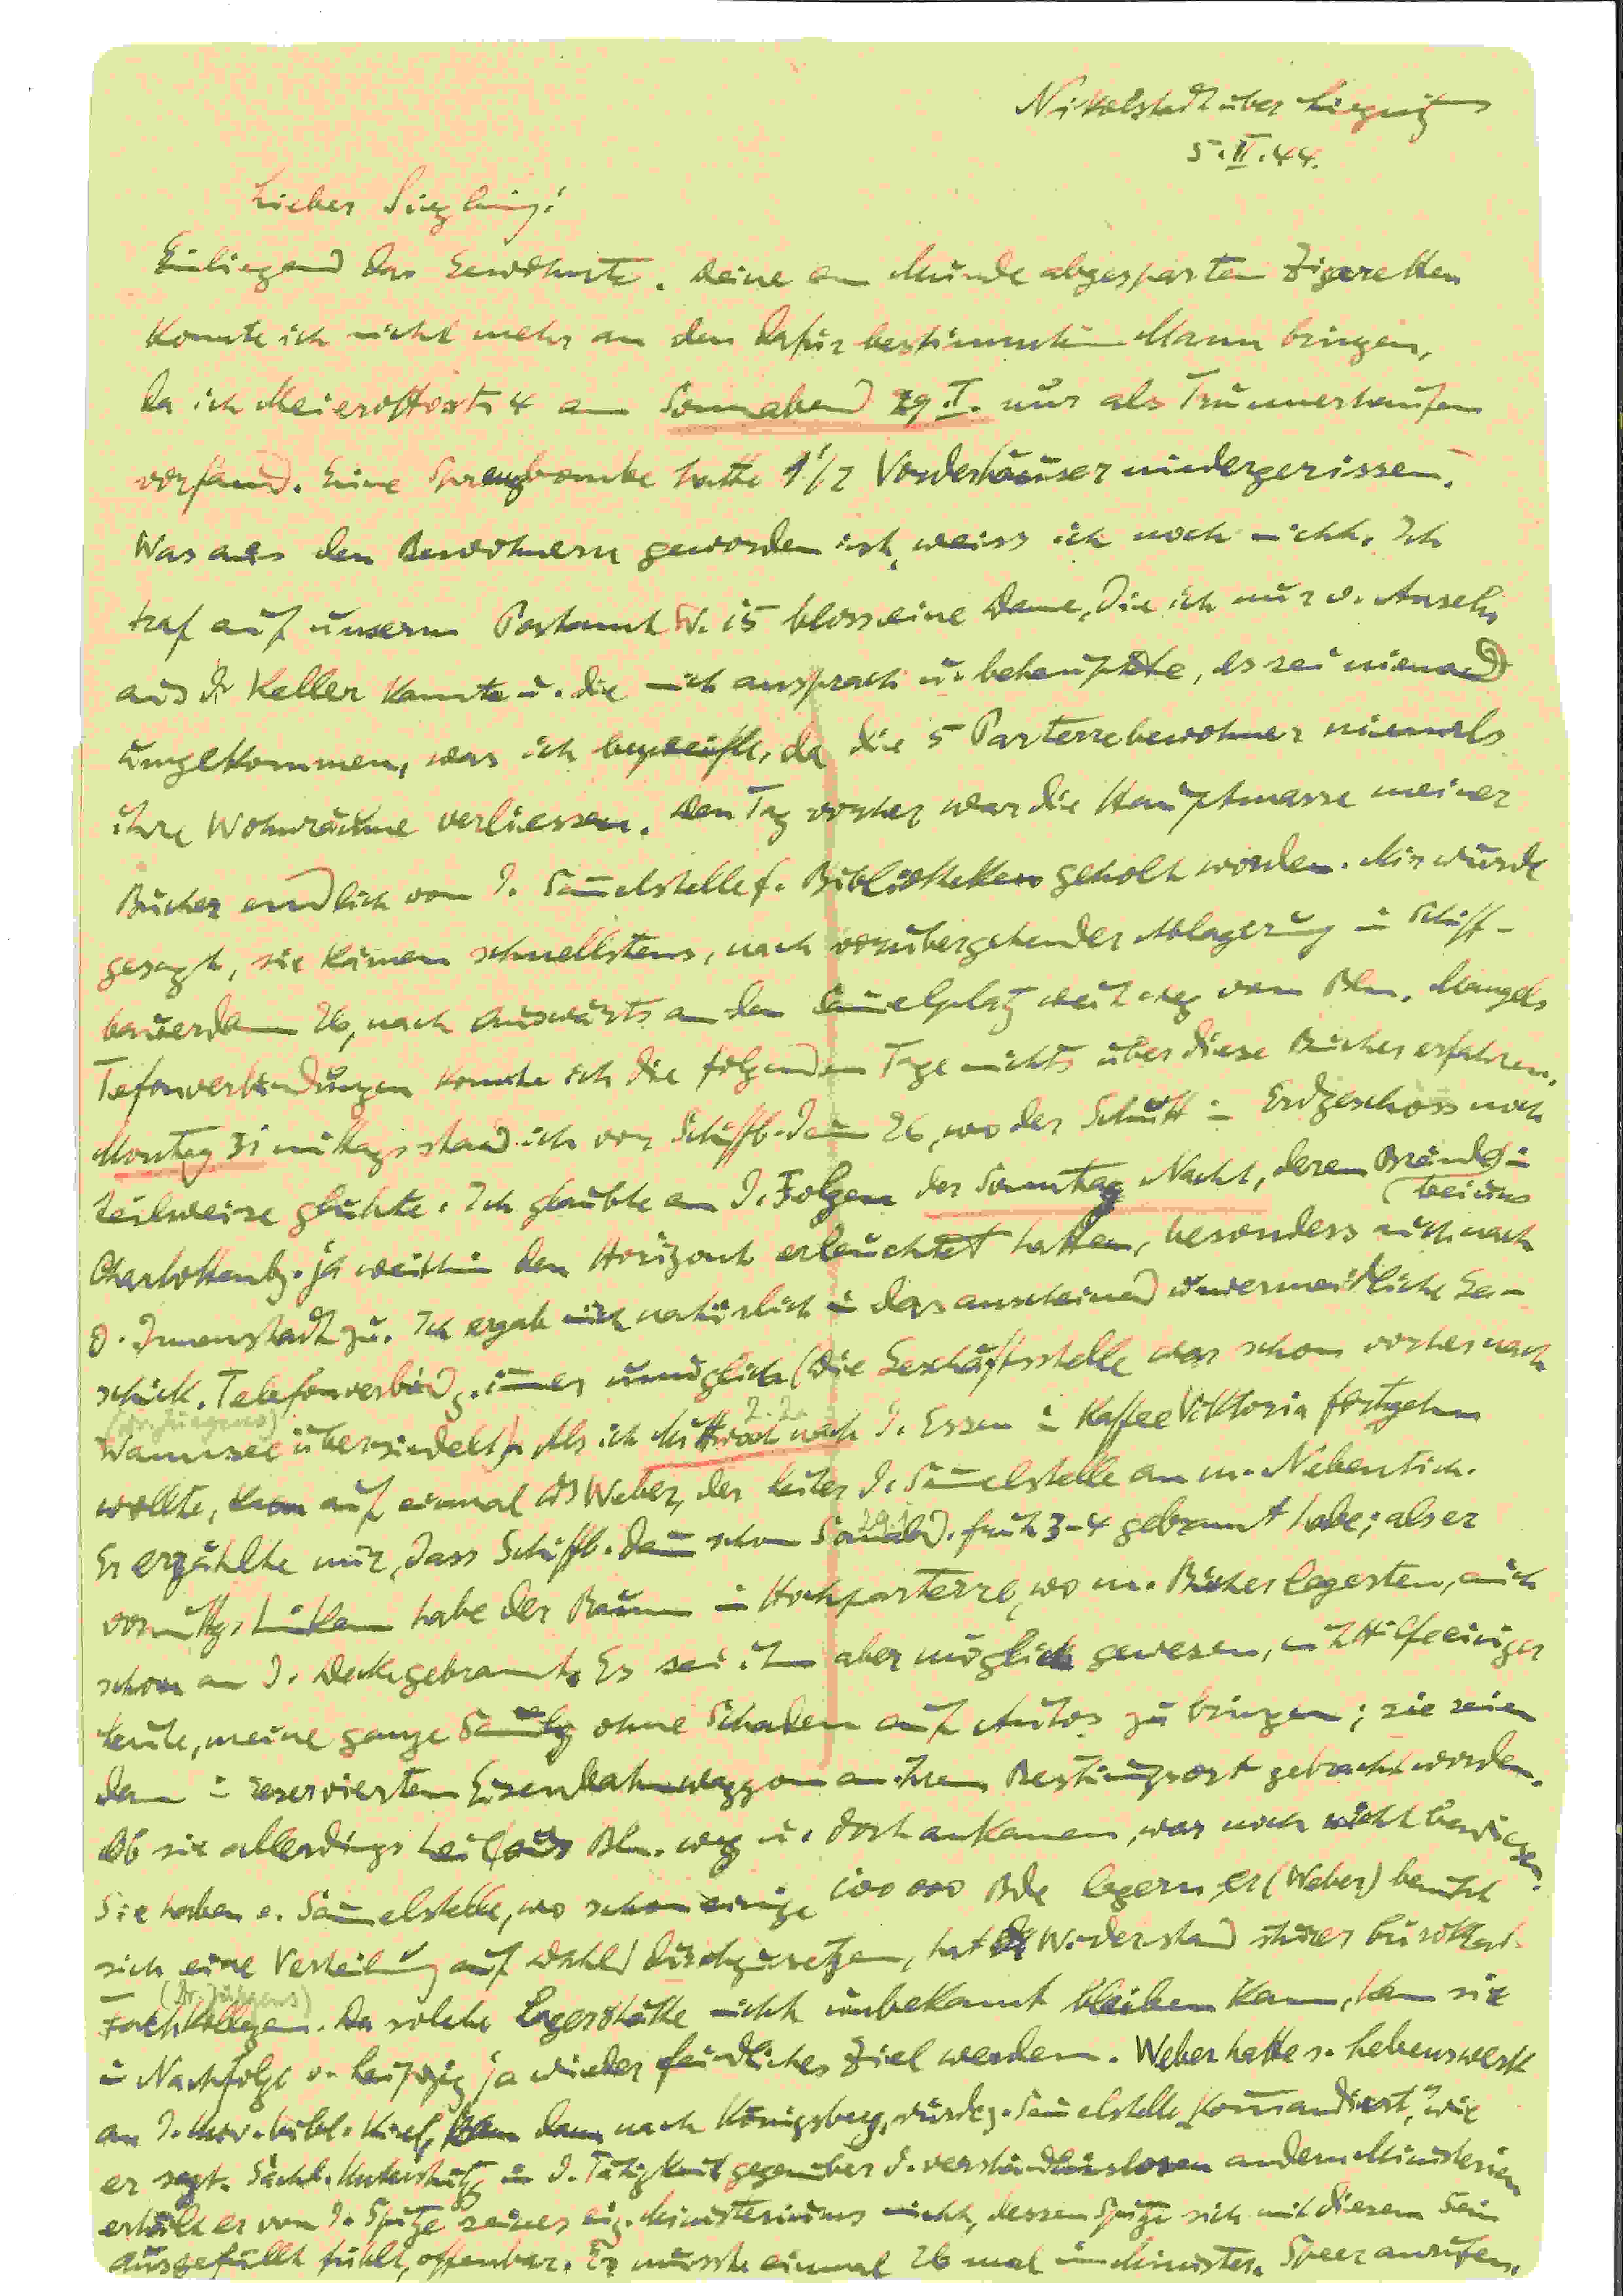 Nikolstadt über Liegnitz
5.II.44.
Lieber Siegling!
Einliegend das Gewohnte. Deine am Munde abgesparten Zigaretten
konnte ich nicht mehr an den dafür bestimmten Mann bringen,
da ich Meierottostr 4 am Sonnabend 29.I. nur als Trümmerhaufen
vorfand. Eine Sprengbombe hatte 1 1/2 Vorderhäuser niedergerissen.
Was aus den Bewohnern geworden ist, weiss ich noch nicht. Ich
traf auf unserm Postamt W. 15 bloss eine Dame, die ich nur v. Ansehn
aus d. Keller kannte u. die mich ansprach u. behauptete, es sei niemand
umgekommen, was ich bezweifle, da die 5 Parterrebewohner niemals
ihre Wohnräume verliessen. Den Tag vorher war die Hauptmasse meiner
Bücher endlich von d. Sam̄elstelle f. Bibliotheken geholt worden. Mir wurde
gesagt, sie kämen schnellstens, nach vorübergehender Ablagerung in Schiff-
bauerdamm 26, nach auswärts an den Sam̄elplatz weit weg von Bln. Mangels
Tefonverbindungen konnte ich die folgenden Tage nichts über diese Bücher erfahren.
Montag 31 mittags stand ich vor Schiffb.dam̄ 26, wo der Schutt im Erdgeschoss noch
teilweise glühte. Ich glaubte an d. Folgen der Sonntag Nacht, deren Brände (bei uns in
Charlottenbg. ja weithin den Horizont erleuchtet hatten, besonders auch nach
d. Innenstadt zu. Ich ergab mich natürlich in das anscheinend unvermeidliche Ge-
schick. Telefonverbindg. im̄er unmöglich (die Geschäftsstelle war schon vorher nach
(Dr. Jürgens)
Wannsee übersiedelt). Als ich Mittwoch 2.2. nach d. Essen im Kaffee Viktoria fortgehen
wollte, kam auf einmal Weber, der Leiter d. Sam̄elstelle an m. Nebentisch.
Er erzählte mir, dass Schiffb.dam̄ schon Sonnabd. 29.1. früh 3-4 gebrannt habe; als er
vormittgs hinkam habe der Raum im Hochparterre, wo m. Bücher lagerten, auch
schon an d. Decke gebrannt. Es sei ihm aber möglich gewesen, mit Hilfe einiger
Leute, meine ganze Sam̄lg ohne Schaden auf Autos zu bringen; sie seien
dann im reservierten Eisenbahnwaggon an ihren Bestim̄gsort gebracht worden.
Ob sie allerdings heil aus Bln. weg u. dort ankamen, war noch nicht bewiesen.
Sie haben e. Sam̄elstelle, wo schon einige 100 000 Bde lagern, er (Weber) bemüht
sich eine Verteilung aufs Land durchzusetzen, hat d. Widerstand sturer bürokrat.
(Dr. Jürgens)
Fachkollegen. Da solche Lagerstätte nicht unbekannt bleiben kann, kann sie
in Nachfolge v. Leipzig ja wieder feindliches Ziel werden. Weber hatte s. Lebenswerk
an d. Univ.bibl. Kiel, kam dann nach Königsberg, wurde z. Sam̄elstelle „kom̄andiert," wie
er sagt. Sächl. Unterstützg in d. Tätigkeit gegenüber d. verständnislosen andern Ministerien
erhält er von d. Spitze seines eig. Ministeriums nicht, dessen Spitze sich mit diesem Sein
ausgefüllt fühlt, offenbar. Er musste einmal 26 mal im Minister. Speer anrufen,